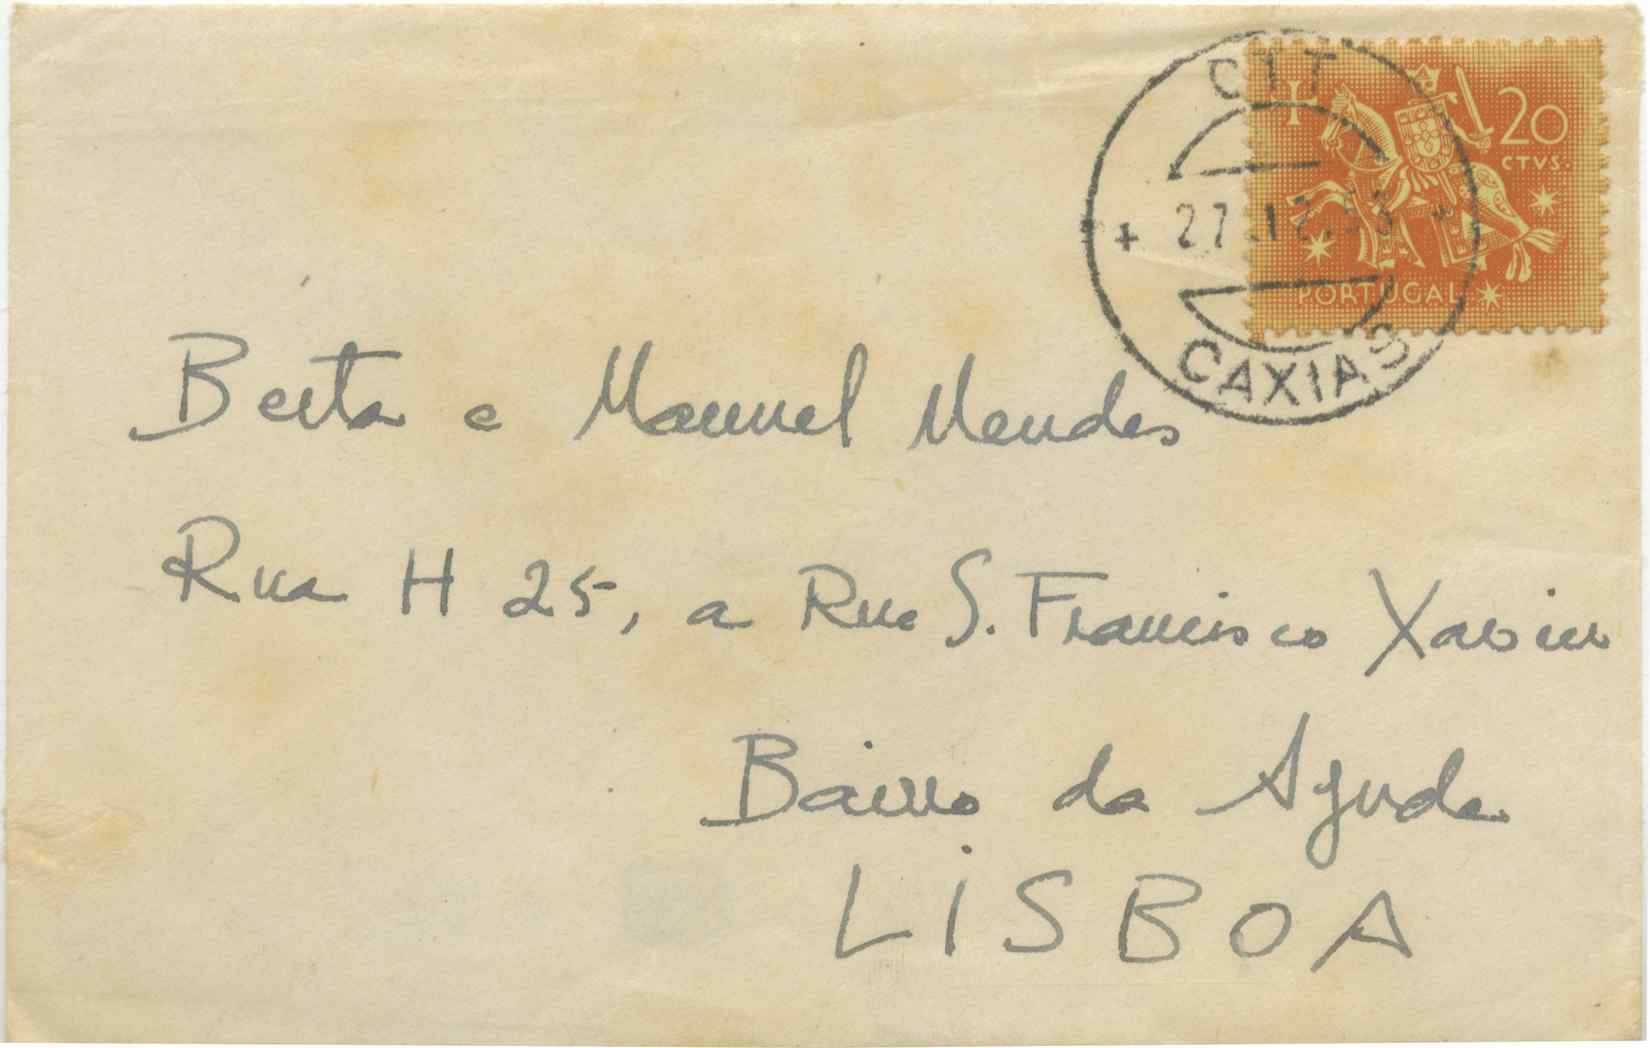 CTT
20
CTVS.
27.12.53
PORTUGAL
CAXIAS
Berta e Manuel Mendes
Rua H 25, a Rua S. Francisco Xavier
Bairro da Ajuda
LISBOA